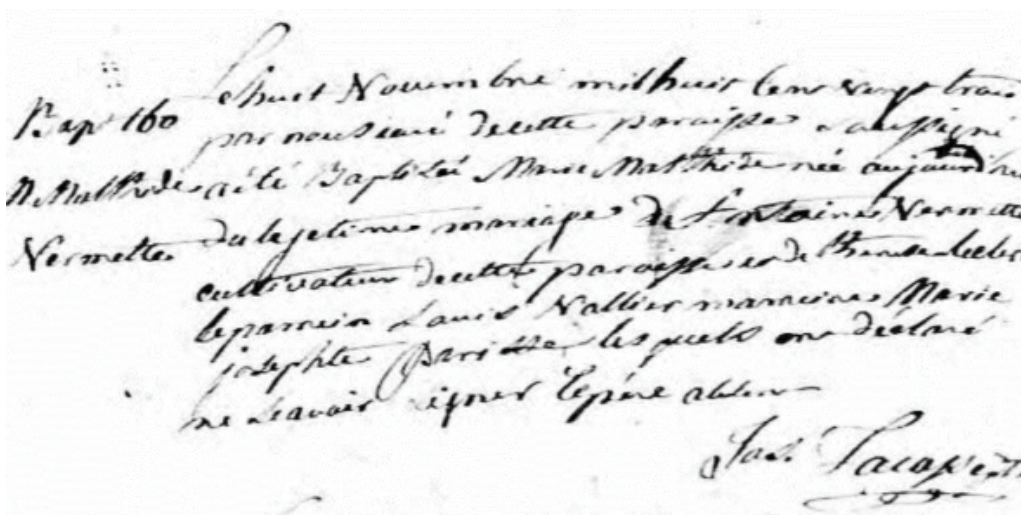 Bap. 160
M. Mathilde
Vermette
Le huit Novembre mil huit cent vingt trois
par nous curé de cette paroisse soussigné
a été Baptisée Marie Mathilde née aujourd'hui
du légitime mariage de Antoine Vermette
cultivateur de cette paroisse et de Leclerc
le parrein Louis Vallier marreine Marie
josephte Parisse lesquels ont déclaré
ne sçavoir signer le père absent
Jos.